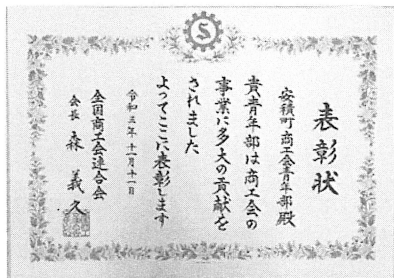 表彰状
安積町商工会青年部殿
貴青年部は商工会の
事業に多大の貢献を
されました
よってここに表彰します
令和三年十一月十一日
全国商工会連合会
会長 森義久